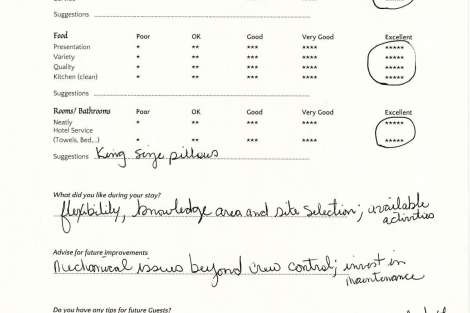 Suggestions
Food Poor OK Good Very Good Excellent
Presentation * ** *** **** *****
Variety * ** *** **** *****
Quality * ** *** **** *****
Kitchen (clean) * ** *** **** *****
Suggestions
Rooms/ Bathrooms Poor OK Good Very Good Excellent
Neatly * ** *** **** *****
Hotel Service
(Towels, Bed,..) * ** *** **** *****
Suggestions King size pillows
What did you like during your stay?
flexibility, knowledge area and site selection; available
activities
Advise for future improvements
Mechanical issues beyond crew control; invest in
maintenance
Do you have any tips for future Guests?